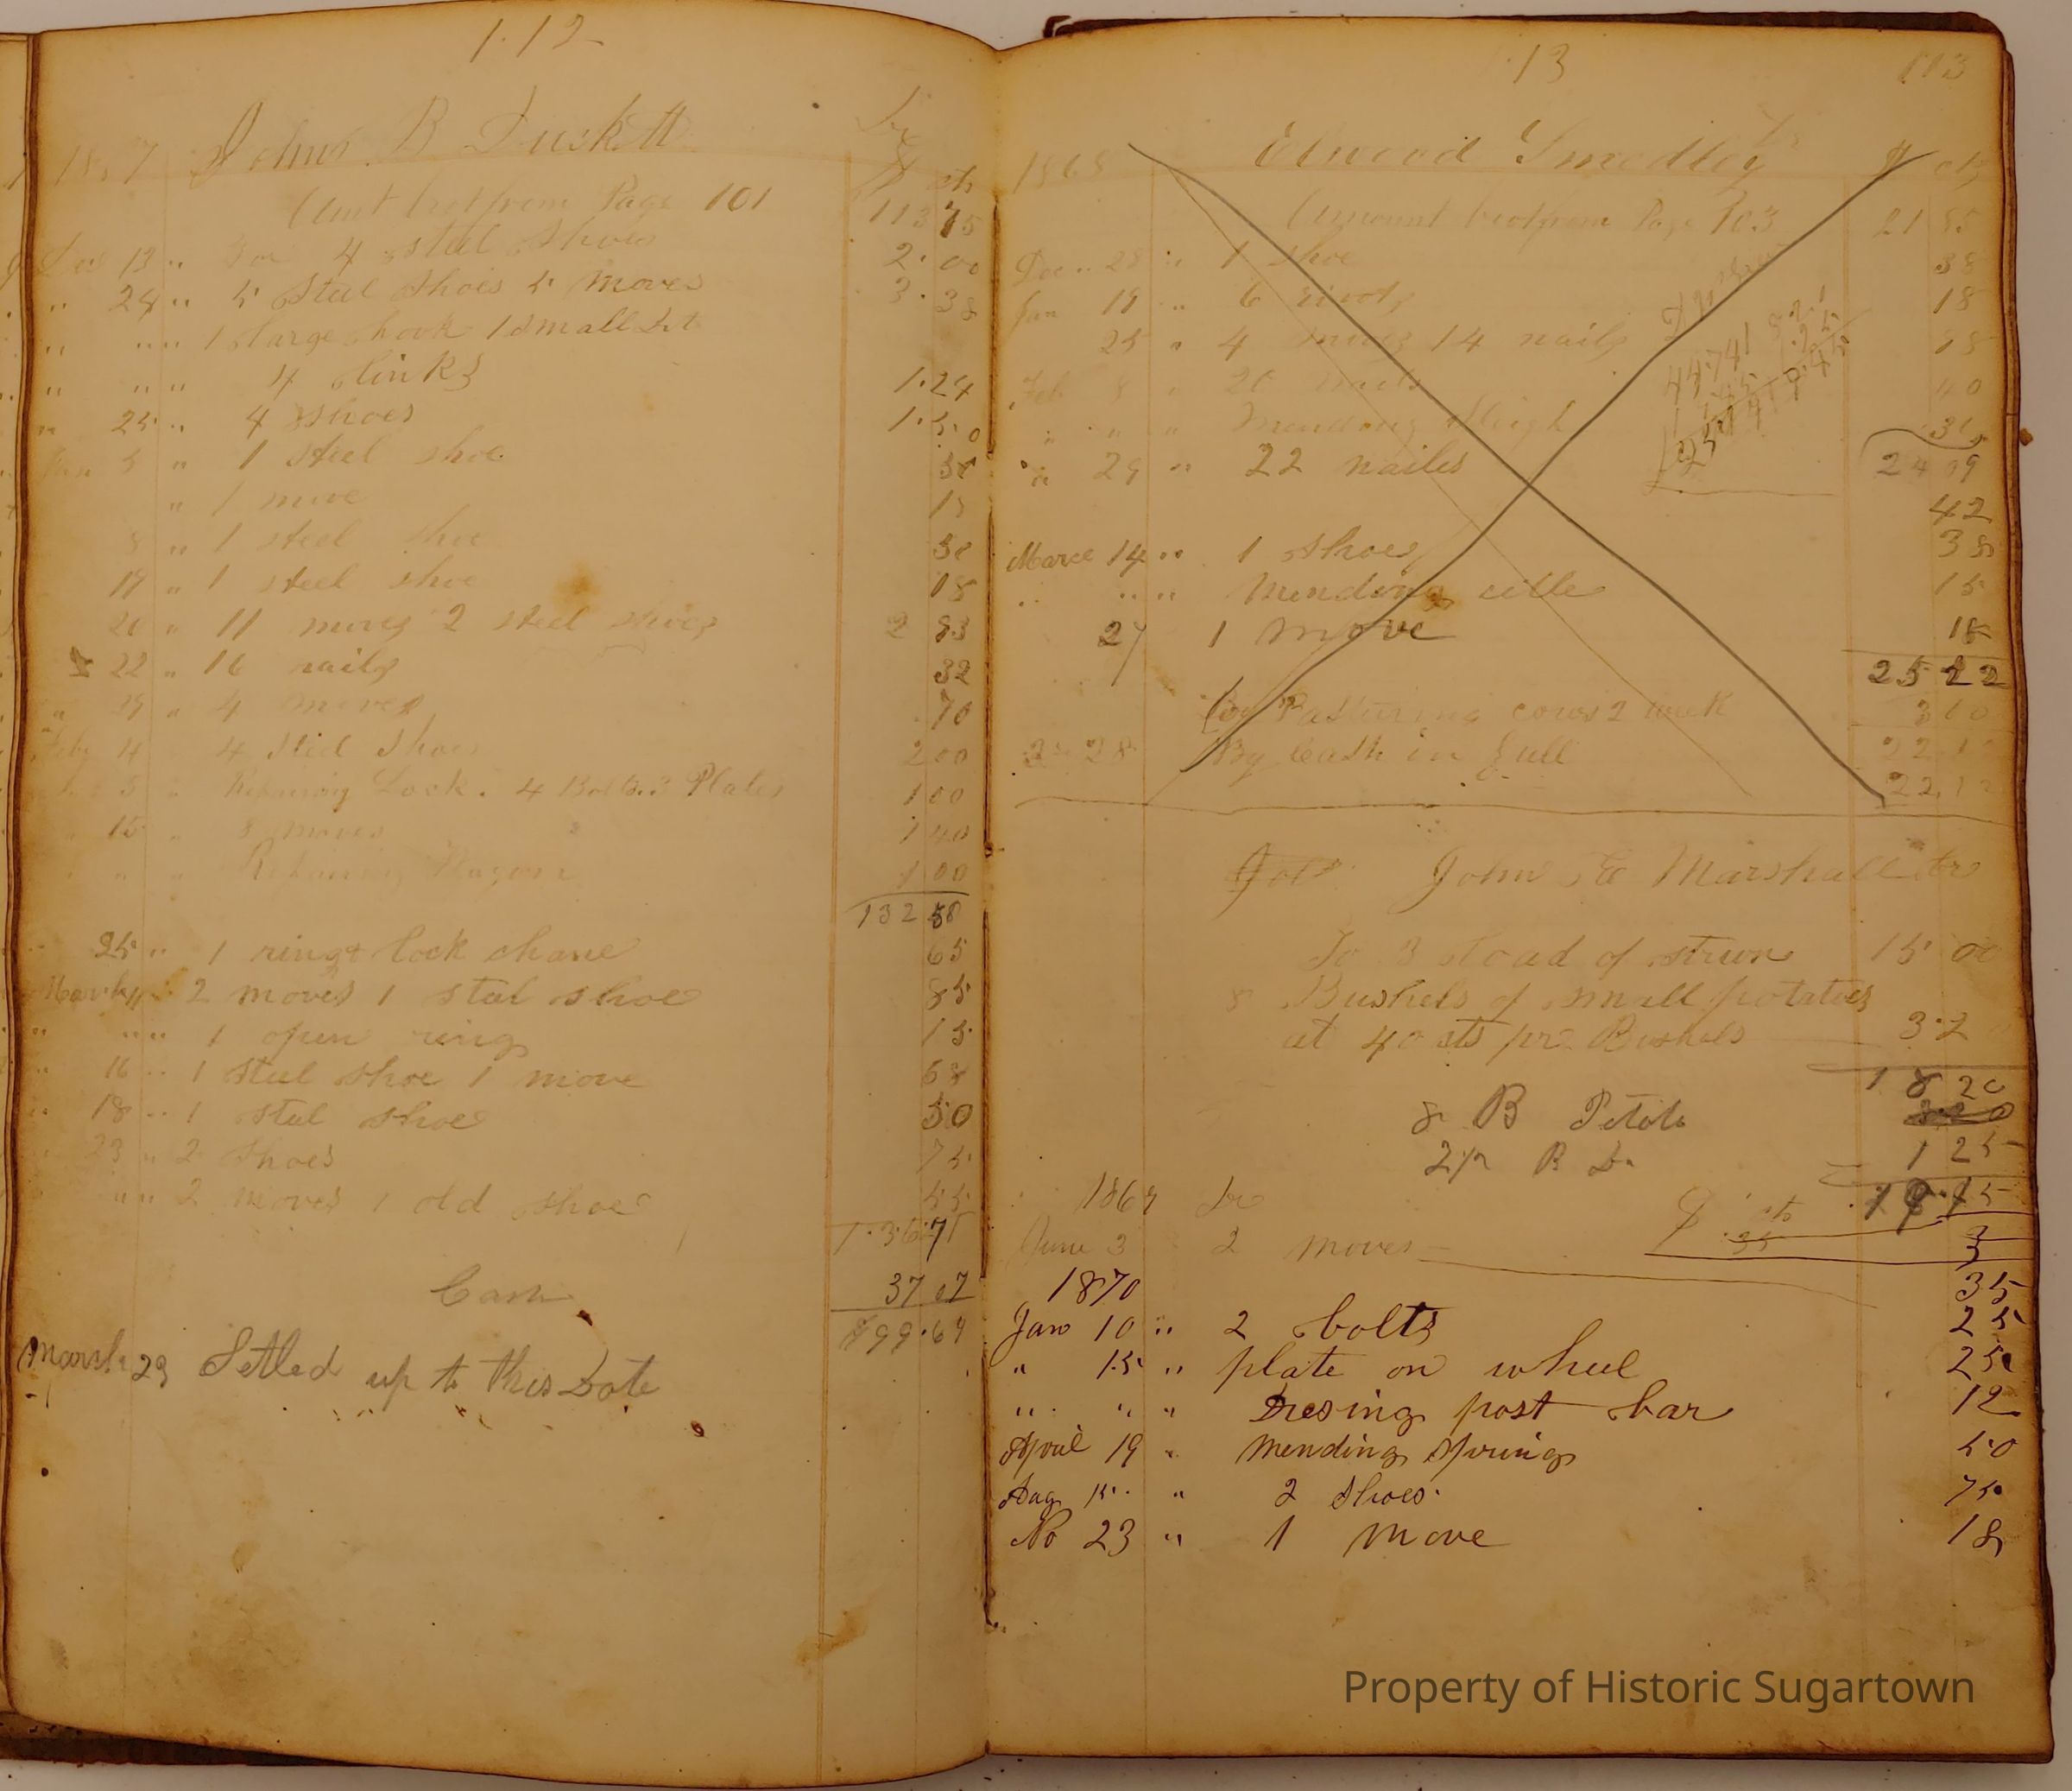 112
John B Duskett Dr
1867 $ cts
Amt brot from Page 101 113 75
Dec 13 " For 4 steel shoes 2.00
" 24 " 5 Steel Shoes 5 moves 3.38
" " " 1 large hook 1 small
" " " 4 links 1.24
" 25 " 4 shoes 1.50
Jan 5 " 1 steel shoe
" 1 move 18
8 " 1 steel shoe
19 " 1 steel shoe
20 " 11 moves 2 steel shoes 2 83
22 " 16 nails 32
" 29 " 4 moves 70
Feby 4 4 Steel Shoes 2 00
" 5 " Repairing Lock. 4 Bolts. 3 Plates 1 00
" 15 " 8 moves 1 40
" " " Repairing Wagon 1 00
132 58
" 25 " 1 ring & lock chane 65
March 11 " 2 moves 1 steel shoe 85
" " " 1 open ring 15
" 16 " 1 steel shoe 1 move 68
" 18 " 1 steel shoe 50
" 23 " 2 shoes 75
" " 2 moves 1 old shoe 55
136 71
Cash 37 07
$99.64
March 29 Setled up to this Date
13 113
1868 Elwood Smedley Dr $ cts
Amount brot from Page 103 21 85
Dec 28 " 1 shoe 38
Jan 19 " 6 rivets 18
25 " 4 moves 14 nails
Feb 8 " 20 nails 40
" " " Mending Sleigh
" 29 " 22 nailes 24 09
42
Marce 14 " 1 shoes 38
" " " Mending cille 15
27 1 move 18
25 22
by Pasturing cows 2 week 3 10
28 By Cash in full 22.12
22.12
John E Marshall Dr
To 3 load of strun 15 00
8 Bushels of small potatoes
at 40 cts pr Bushels 3.2
18 20
8 B Petato 3.20
2 1/2 B Do 1 25
1869 Dr $ cts
June 3 2 moves 35
1870 35
Jan 10 " 2 bolts 25
" 15 " plate on wheel 25
" " " Dresing post bar 12
April 19 " mending springs 50
Aug 15 " 2 shoes 75
No 23 " 1 move 18
Property of Historic Sugartown